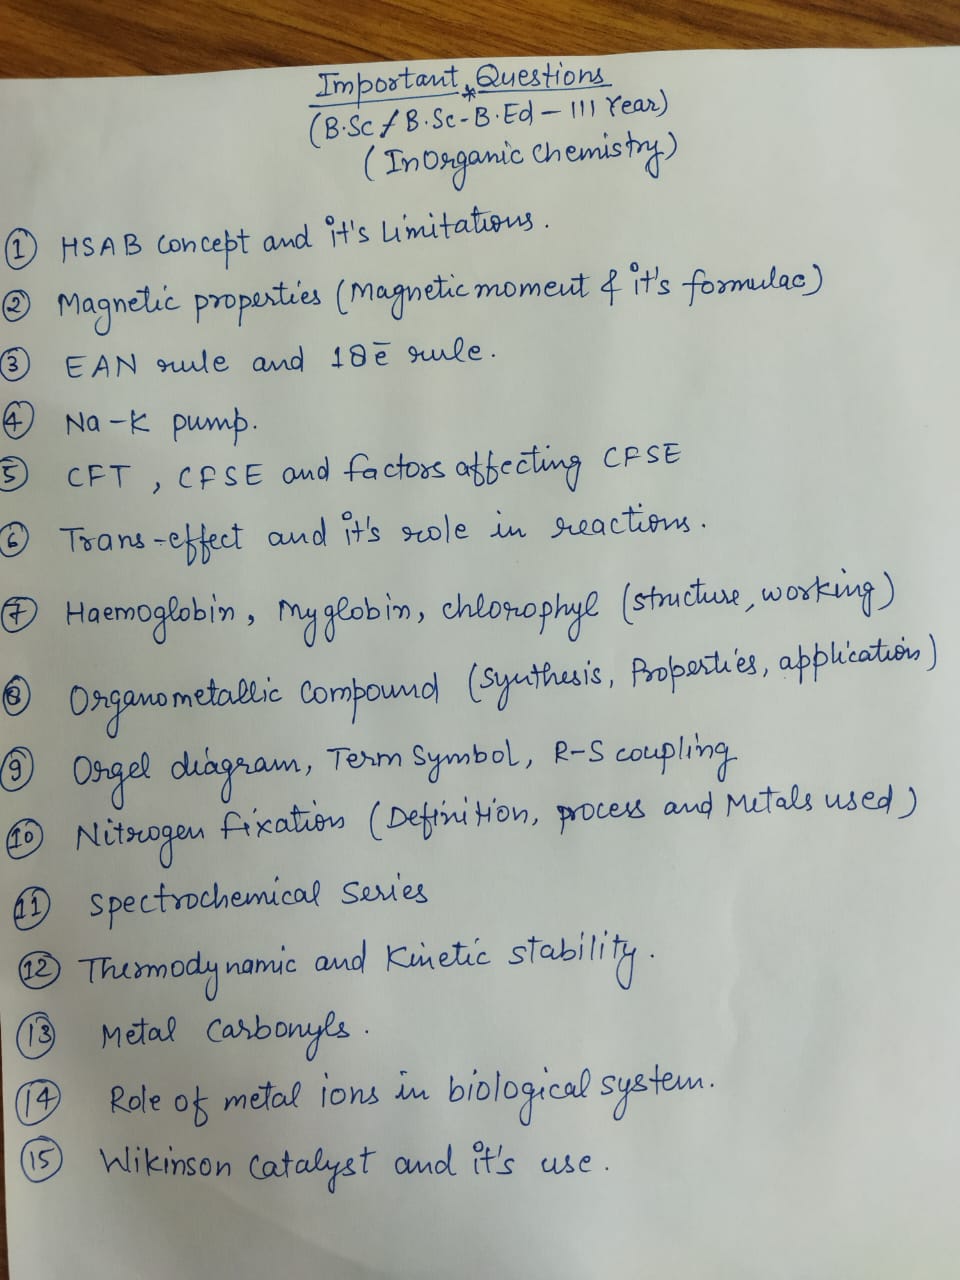 Important Questions
*
(B.Sc / B.Sc-B.Ed – III Year)
(InOrganic Chemistry)
1 HSAB Concept and it's Limitations.
2 Magnetic properties (Magnetic moment & it's formulae)
3 EAN rule and 18ē rule.
4 Na-K pump.
5 CFT, CFSE and factors affecting CFSE
6 Trans-effect and it's role in reactions.
7 Haemoglobin, Myglobin, chlorophyl (structure, working)
8 Organometallic Compound (Synthesis, Properties, application)
9 Orgel diagram, Term Symbol, R-S coupling
10 Nitrogen fixation (Definition, process and Metals used)
11 Spectrochemical Series
12 Thermodynamic and Kinetic stability.
13 Metal Carbonyls.
14 Role of metal ions in biological system.
15 Wikinson Catalyst and it's use.